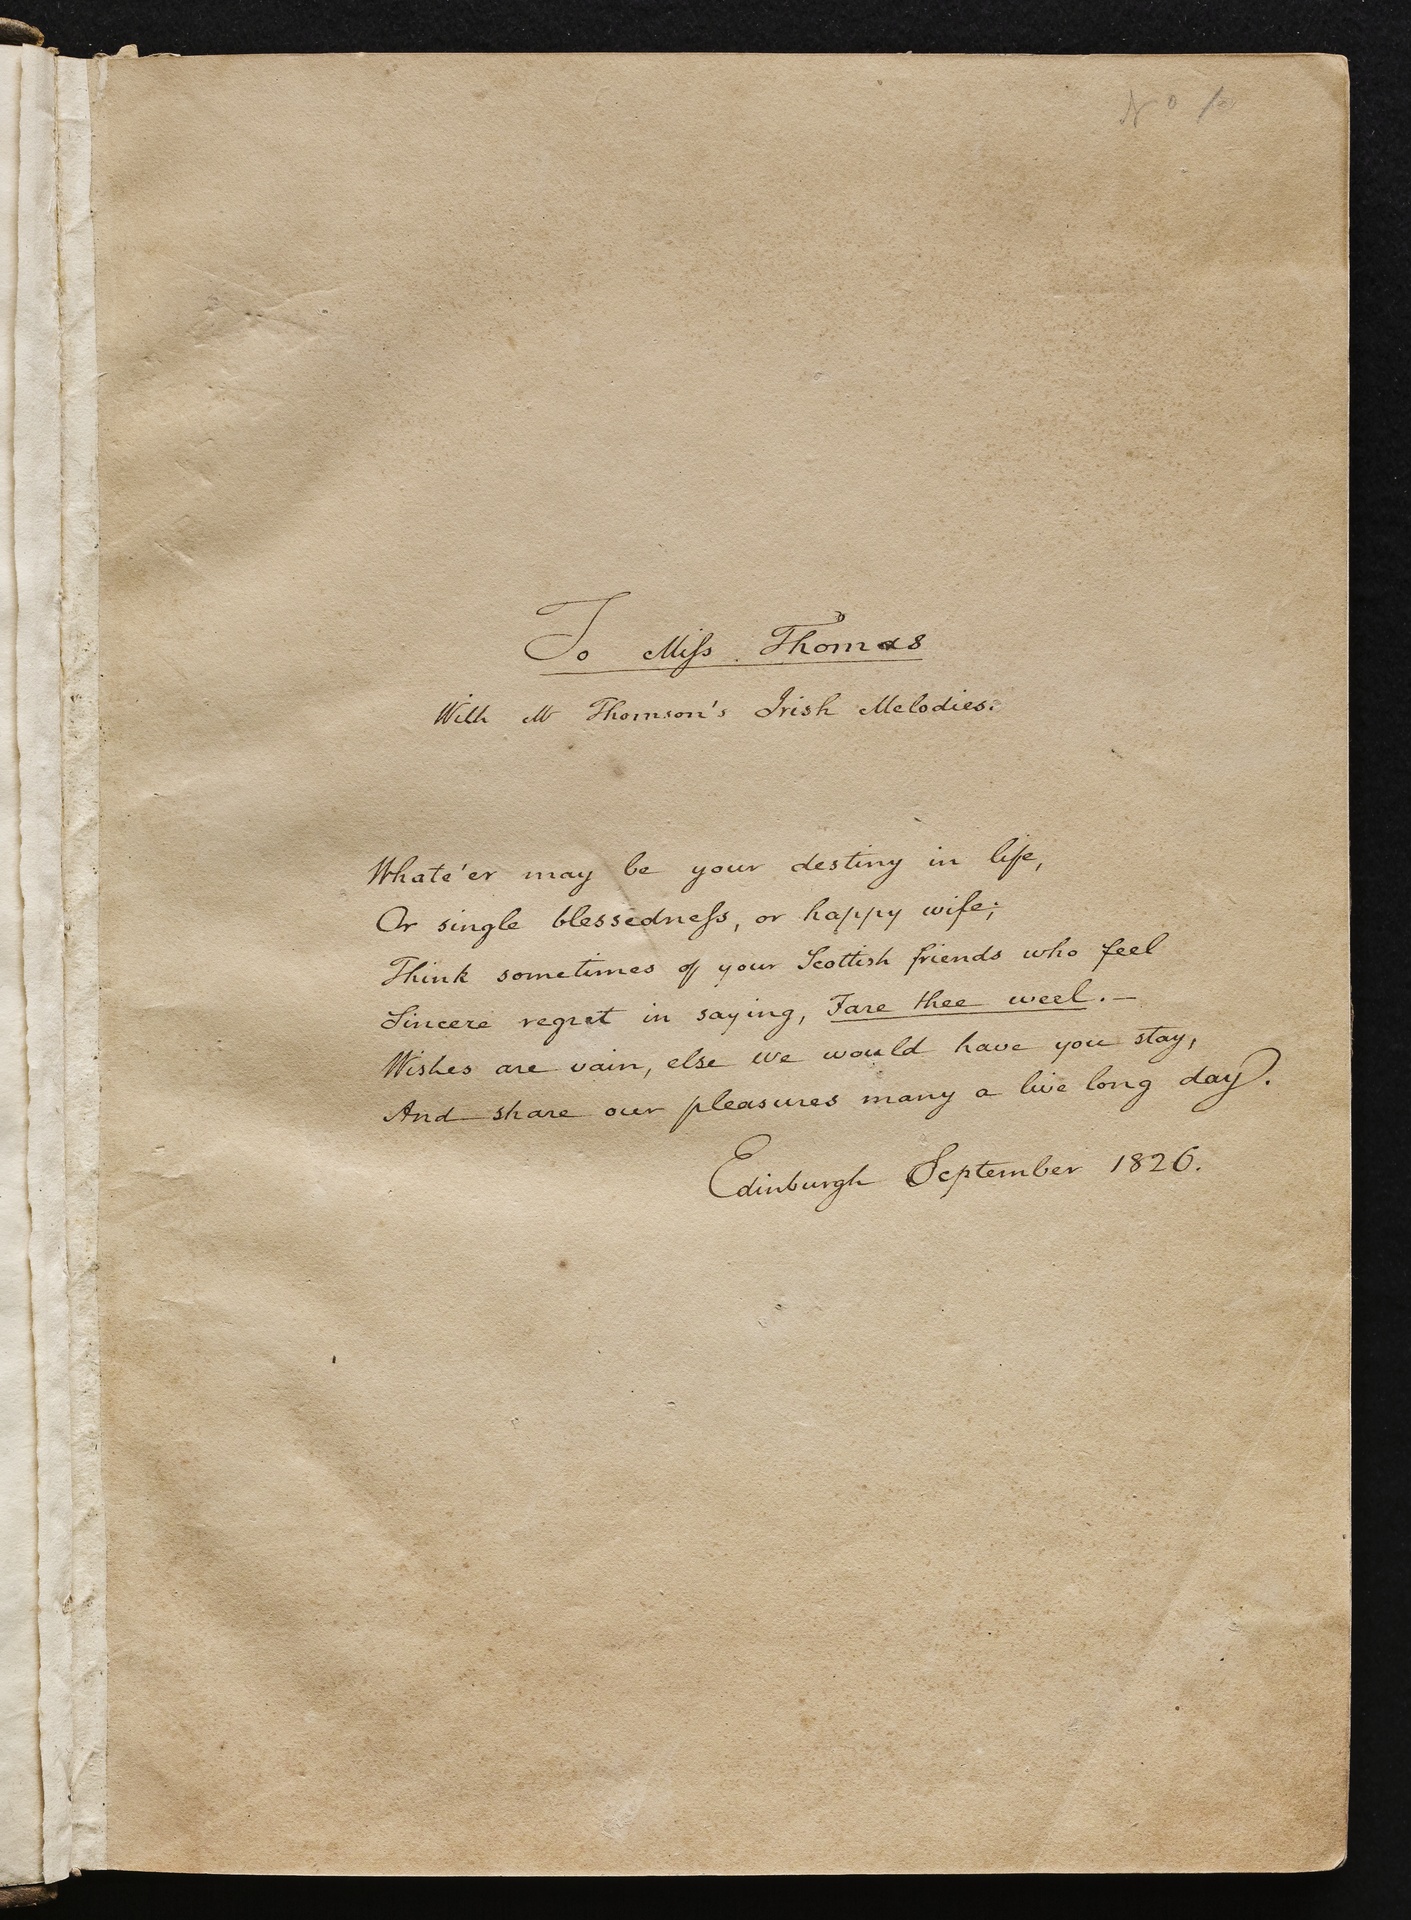 To Miſs Thomas
With Mr Thomson's Irish Melodies.
Whate'er may be your destiny in life,
Or single blessedneſs, or happy wife;
Think sometimes of your Scottish friends who feel
Sincere regret in saying, Fare thee weel. —
Wishes are vain, else we would have you stay,
And share our pleasures many a live long day.
Edinburgh September 1826.